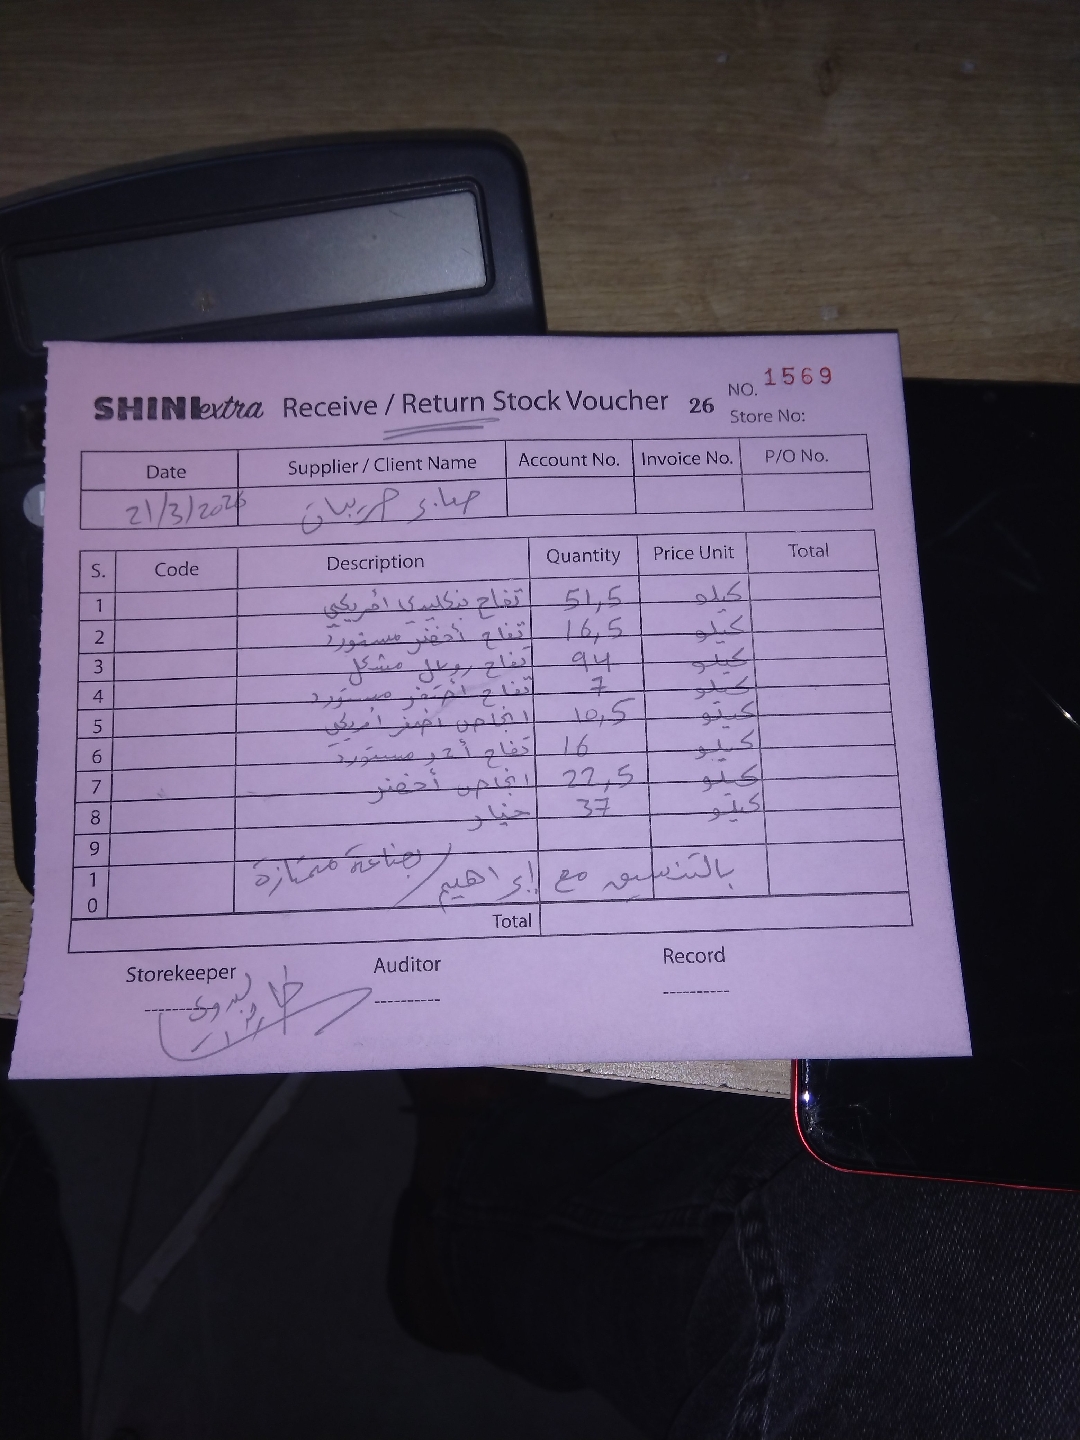 SHINI extra Receive / Return Stock Voucher 26 NO. 1569
Store No:
Date Supplier / Client Name Account No. Invoice No. P/O No.
21/3/2026
S. Code Description Quantity Price Unit Total
1 تفاح أمريكي 51,5 كيلو
2 تفاح أخضر مستورد 16,5 كيلو
3 تفاح رويال مشكل 94 كيلو
4 تفاح أصفر مستورد 7 كيلو
5 انجاص أصفر أمريكي 10,5 كيلو
6 تفاح أحمر مستورد 16 كيلو
7 انجاص أخضر 22,5 كيلو
8 خيار 37 كيلو
9
10 بالتنسيق مع إبراهيم / بضاعة ممتازة
Total
Storekeeper Auditor Record